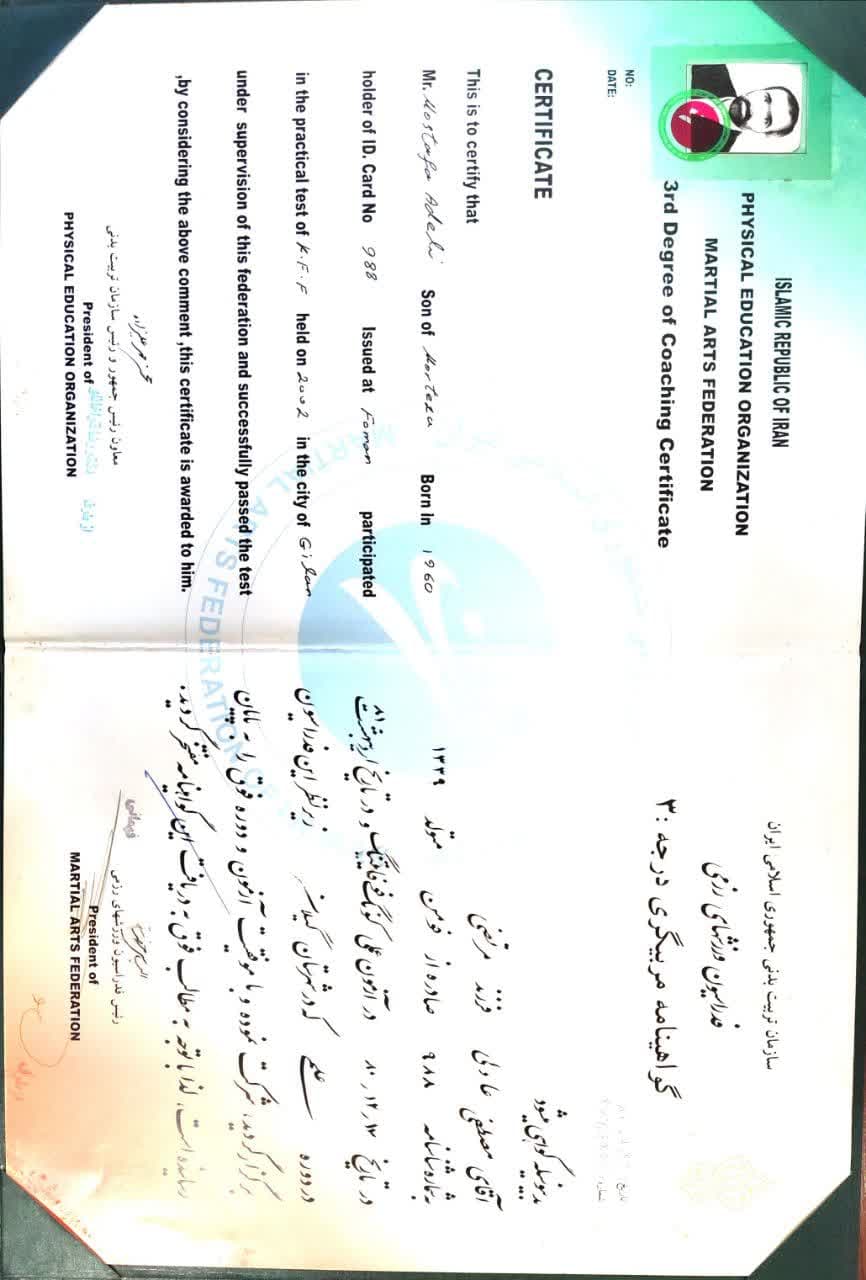 ISLAMIC REPUBLIC OF IRAN
PHYSICAL EDUCATION ORGANIZATION
MARTIAL ARTS FEDERATION
3rd Degree of Coaching Certificate
NO:
DATE:
CERTIFICATE
This is to certify that
Mr. Mostafa Adeli Son of Morteza Born In 1960
holder of ID. Card No 988 Issued at Foman participated
in the practical test of K.F.F held on 2002 in the city of Gilan
under supervision of this federation and successfully passed the test
,by considering the above comment ,this certificate is awarded to him.
معاون رئیس جمهور و رئیس سازمان تربیت بدنی
President of
PHYSICAL EDUCATION ORGANIZATION
سازمان تربیت بدنی جمهوری اسلامی ایران
فدراسیون ورزشهای رزمی
گواهینامه مربیگری درجه : ۳
تاریخ :
شماره :
بدینوسیله گواهی میشود
آقای مصطفی عادلی فرزند مرتضی
بشماره شناسنامه ۹۸۸ صادره از فومن متولد ۱۳۳۹
در تاریخ ۸۰/۱۲/۱۷ در آزمون عملی کونگ فو و در تاریخ اردیبهشت ۸۱
در دوره علمی که در شهرستان گیلان زیر نظر این فدراسیون
برگزار گردید، شرکت نموده و با موفقیت آزمون و دوره فوق را به پایان
رسانیده است، لذا با توجه به مطالب فوق به دریافت این گواهینامه مفتخر گردید.
رئیس فدراسیون ورزشهای رزمی
President of
MARTIAL ARTS FEDERATION
MARTIAL ARTS FEDERATION OF